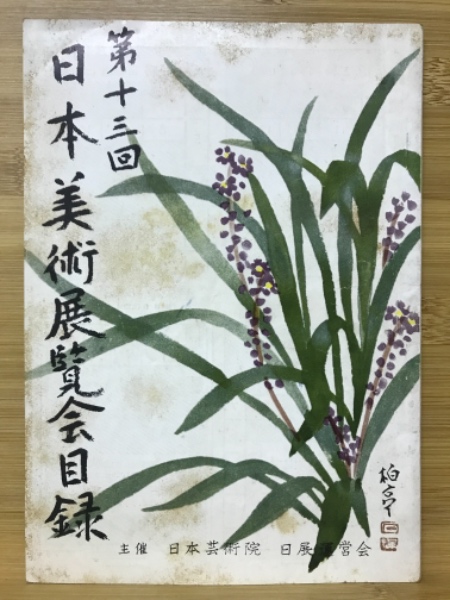 第十三回
日本美術展覧会目録
柏亭
主催 日本芸術院 日展運営会